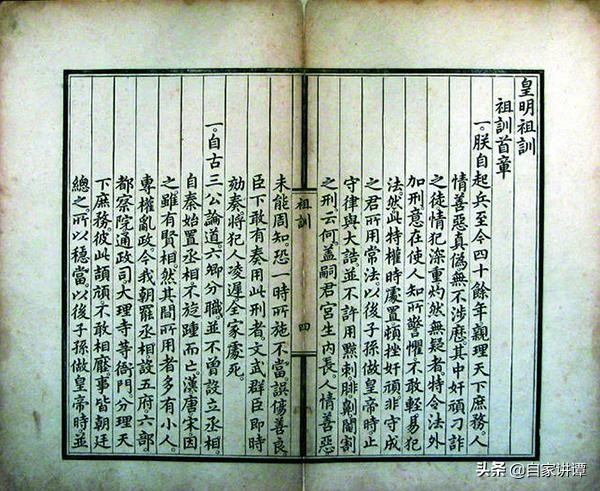 皇明祖訓
祖訓首章
一。朕自起兵至今四十餘年。親理天下庶務人
情善惡真偽無不涉歷。其中奸頑刁詐
之徒情犯深重灼然無疑者。特令法外
加刑意在使人知所警懼不敢輕易犯
法然此特權時處置頓挫奸頑非守成
之君所用常法。以後子孫做皇帝時止
守律與大誥並不許用黥刺腓劓閹割
之刑云何。蓋嗣君宮生內長。人情善惡
祖訓
四
未能周知恐一時所施不當。誤傷善良
臣下敢有奏用此刑者。文武群臣即時
劾奏將犯人凌遲全家處死。
一。自古三公論道。六卿分職。並不曾設立丞相。
自秦始置丞相不旋踵而亡。漢唐宋因
之。雖有賢相然其間所用者多有小人。
專權亂政。今我朝罷丞相設五府。六部。
都察院。通政司。大理寺等衙門。分理天
下庶務。彼此頡頏不敢相壓。事皆朝廷
總之。所以穩當。以後子孫做皇帝時。並
头条 @自家讲谭